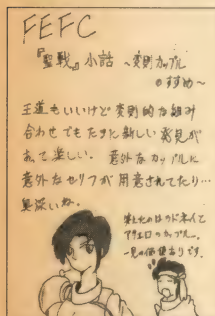 FEFC
『聖戦』小話 ~変則カップル
のすすめ~
王道もいいけど 変則的な組み
合わせでもたまに新しい発見が
あって楽しい. 意外なカップルに
意外なセリフが用意されてたり…
奥深いね.
アグエロのカップル.
一見の価値ありです.